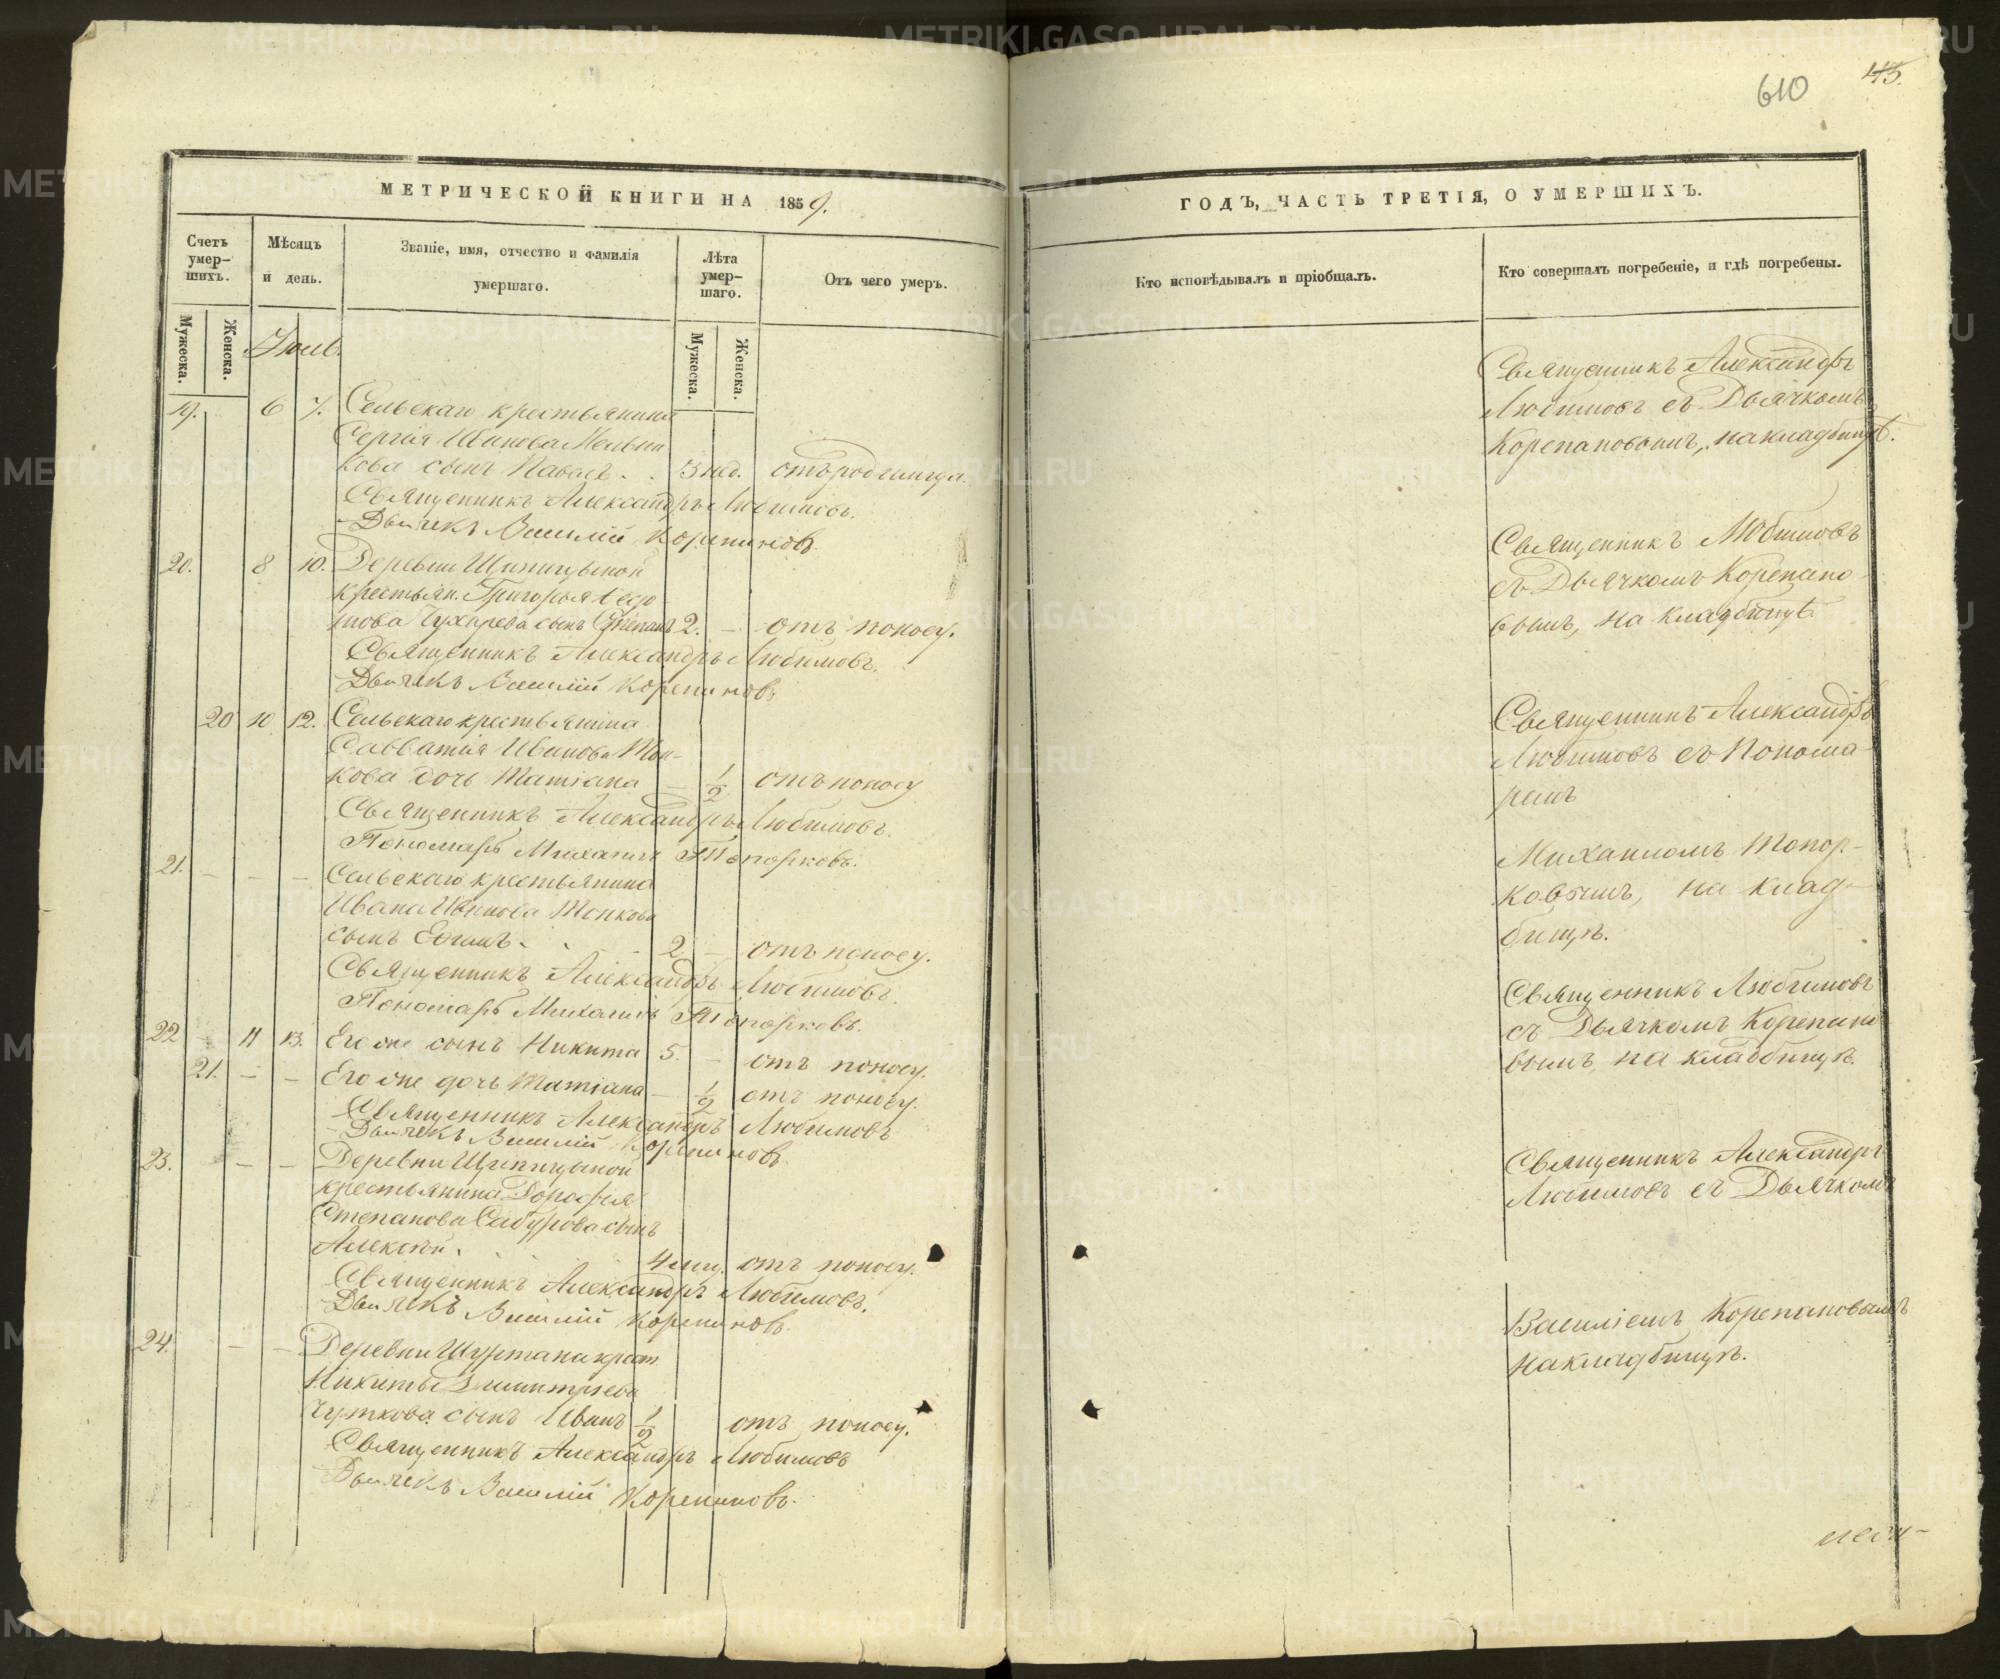 610
45.
МЕТРИЧЕСКОЙ КНИГИ НА 1859.
Счетъ умер-шихъ.
Мѣсяцъ и день.
Званіе, имя, отчество и фамилія умершаго.
Лѣта умер-шаго.
Отъ чего умеръ.
Мужеска.
Женска.
Мужеска.
Женска.
Іюль.
19. 6 7. Сельскаго крестьянина
Сергія Иванова Мельни
кова сынъ Павелъ. . 3 нед. отъ родимца.
Священникъ Александръ Любимовъ.
Дьячекъ Василій Корепановъ.
20. 8 10. Деревни Щипицыной
крестьян. Григорья Ѳедо
това Чухарева сынъ Степанъ 2. — отъ поносу.
Священникъ Александръ Любимовъ.
Дьячекъ Василій Корепановъ
20 10 12. Сельскаго крестьянина
Савватія Иванова Топ-
кова дочь Татіана — 1/2 отъ поносу
Священникъ Александръ Любимовъ.
Пономарь Михаилъ Топорковъ.
21. — — — Сельскаго крестьянина
Ивана Иванова Топкова
сынъ Ефимъ. . . 2 — отъ поносу.
Священникъ Александръ Любимовъ.
Пономарь Михаилъ Топорковъ.
22 — 11 13. Его же сынъ Никита 5. — отъ поносу.
21. — — Его же дочь Татіана — 1/2 отъ поносу.
Священникъ Александръ Любимовъ
Дьячекъ Василій Корепановъ.
23. — — Деревни Щипицыной
крестьянина Дорофея
Степанова Сабурова сынъ
Алексѣй. . . 4 мѣс. отъ поносу.
Священникъ Александръ Любимовъ.
Дьячекъ Василій Корепановъ.
24. — — Деревни Шуртана крест.
Никиты Димитріева
Чурткова сынъ Иванъ 1/2 отъ поносу.
Священникъ Александръ Любимовъ
Дьячекъ Василій Корепановъ.
ГОДЪ, ЧАСТЬ ТРЕТІЯ, О УМЕРШИХЪ.
Кто исповѣдывалъ и пріобщалъ.
Кто совершалъ погребеніе, и гдѣ погребены.
Священникъ Александръ
Любимовъ съ Дьячкомъ
Корепановымъ, на кладбищѣ.
Священникъ Любимовъ
съ Дьячкомъ Корепано
вымъ, на кладбищѣ
Священникъ Александръ
Любимовъ съ Понома-
ремъ
Михаиломъ Топор-
ковымъ, на клад-
бищѣ.
Священникъ Любимовъ
съ Дьячкомъ Корепано
вымъ, на кладбищѣ.
Священникъ Александръ
Любимовъ съ Дьячкомъ
Василіемъ Корепановымъ
на кладбищѣ.
METRIKI.GASO-URAL.RU